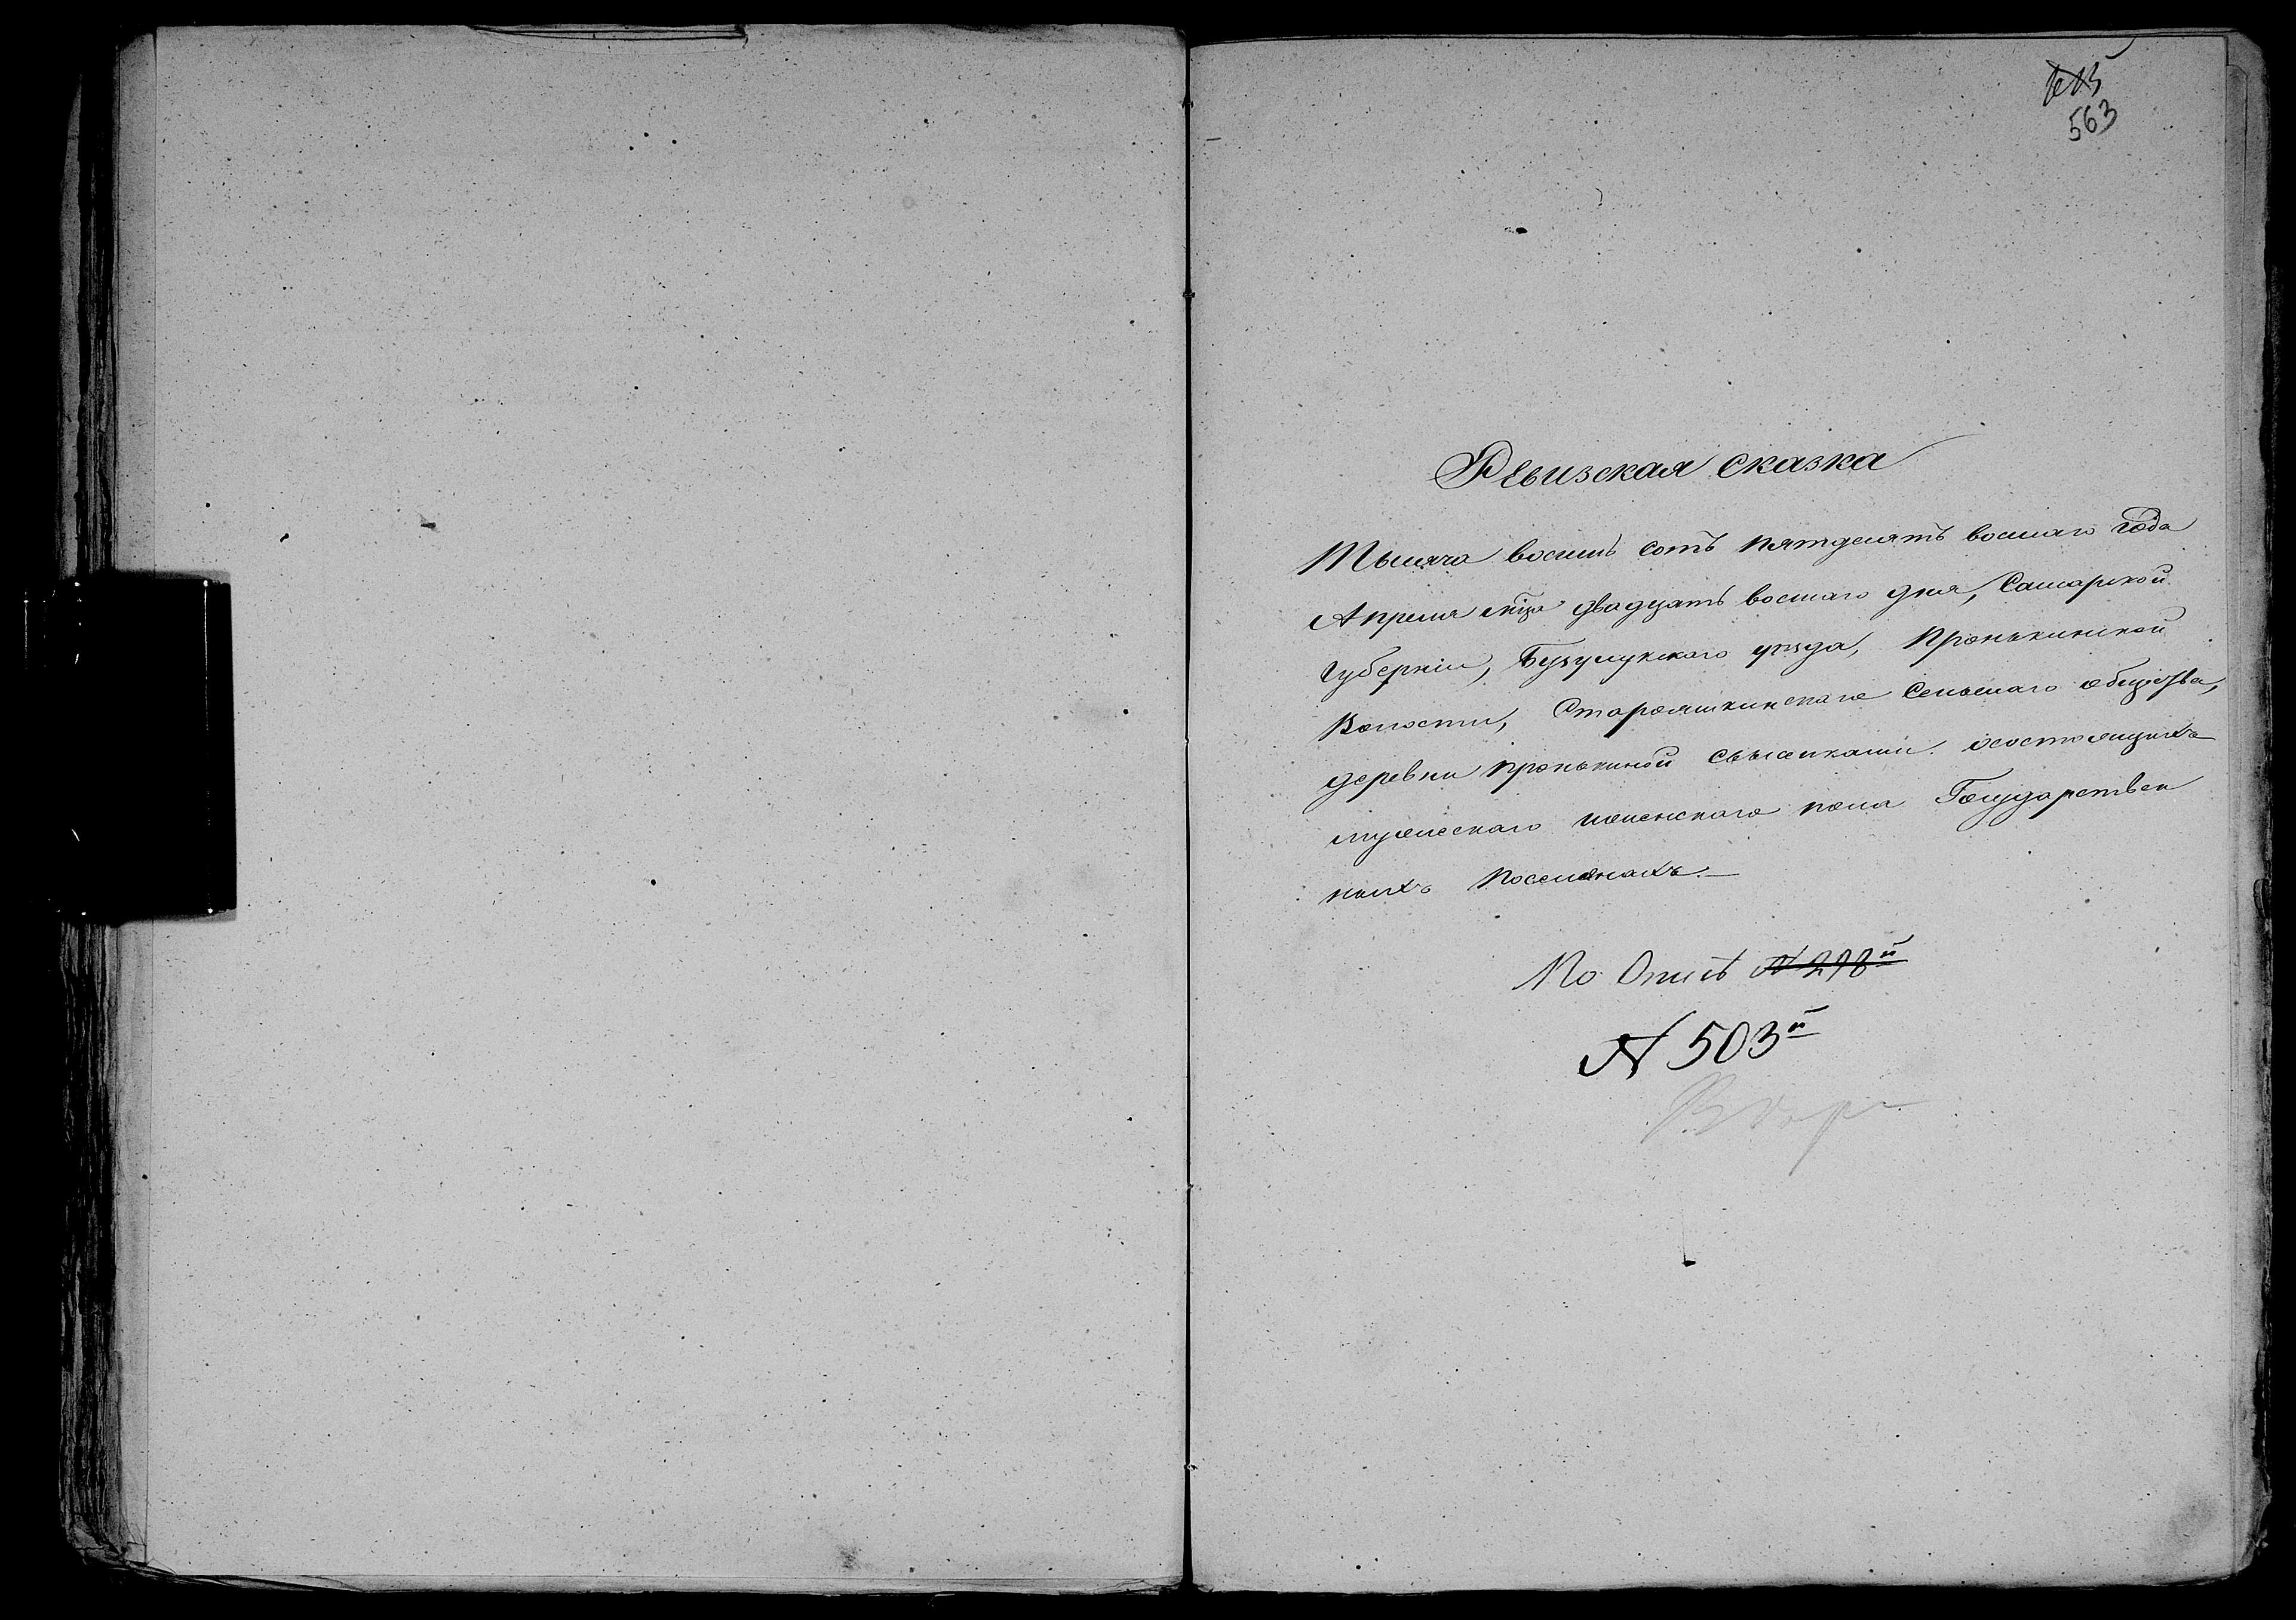 563
Ревизская сказка
Тысяча восемь сотъ пятдесятъ восмаго года
Апреля мца двадцать восмаго дня, Самарской
Губерніи, Бузулукскаго уезда, Пронькинской
Волости, Старояшкинскаго Сельскаго общества,
деревни Пронькиной свыселками осостоящихъ
мужескаго иженскаго пола Государствен
ныхъ Поселянахъ.—
По Описѣ N 298й
N 503й